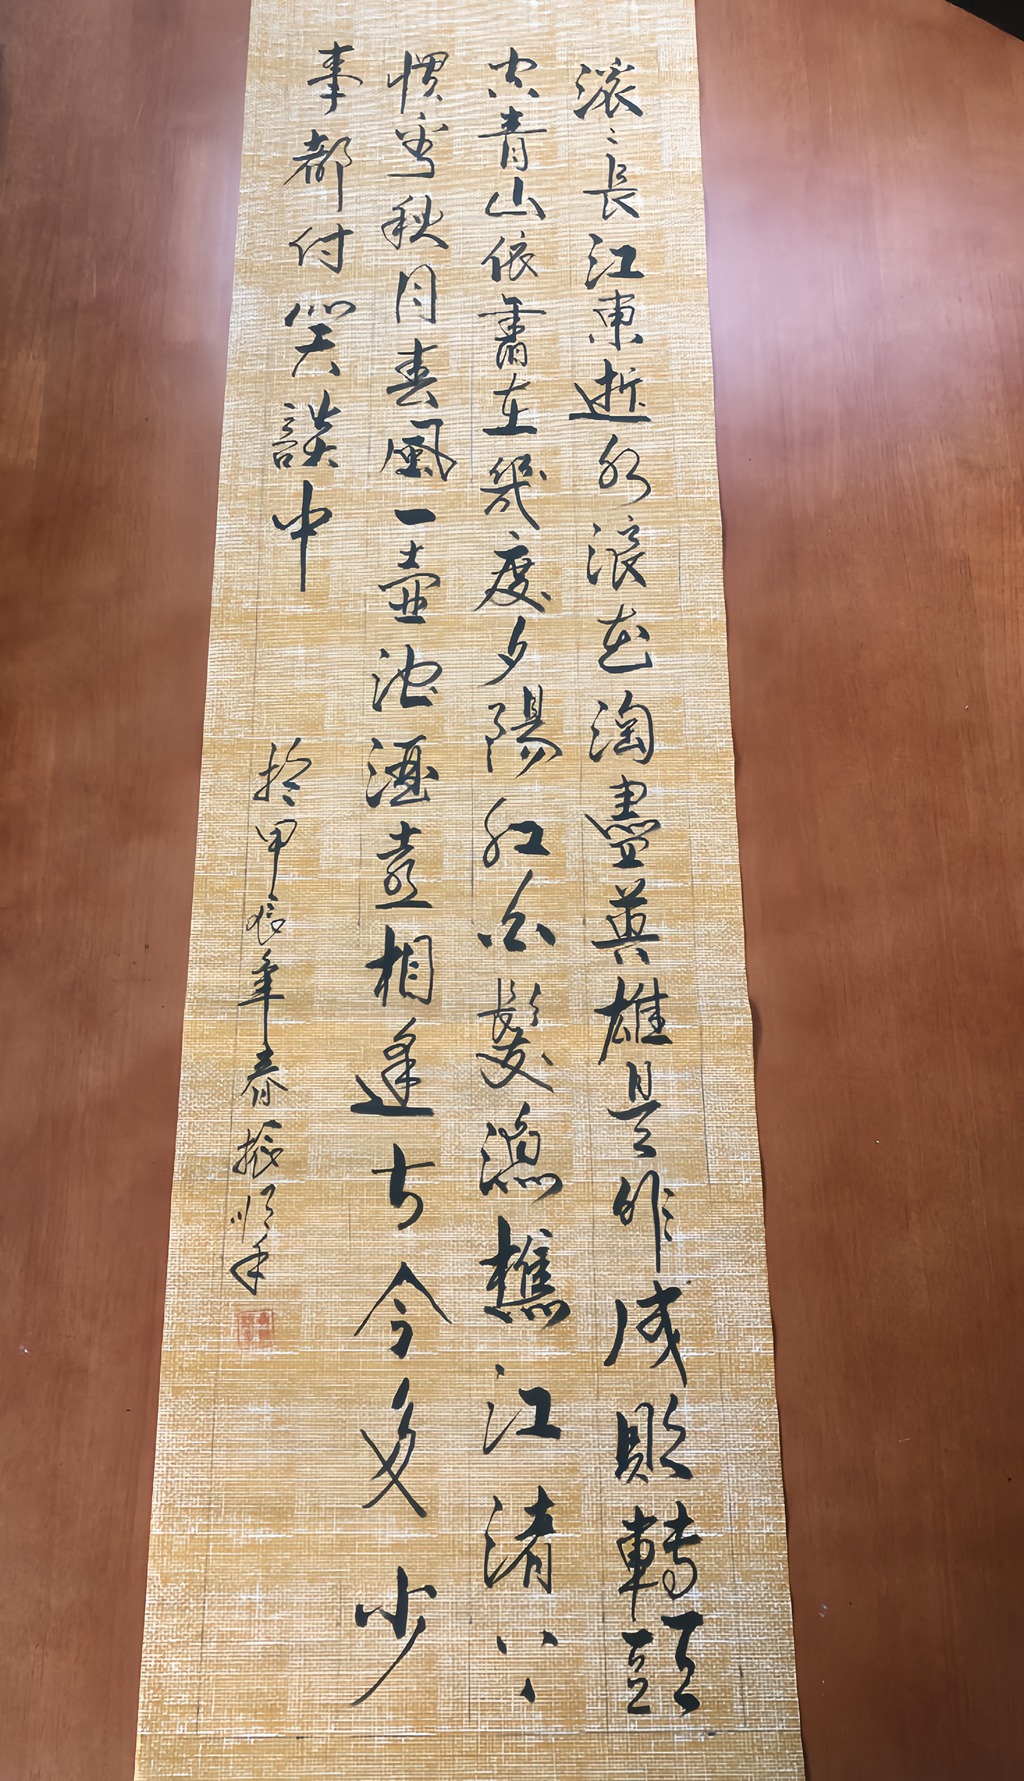 滚〻長江東逝水浪花淘盡英雄是非成敗轉頭
空青山依舊在幾度夕陽紅白髮漁樵江渚上
慣看秋月春風一壺濁酒喜相逢古今多少
事都付笑談中
於甲辰年春振順